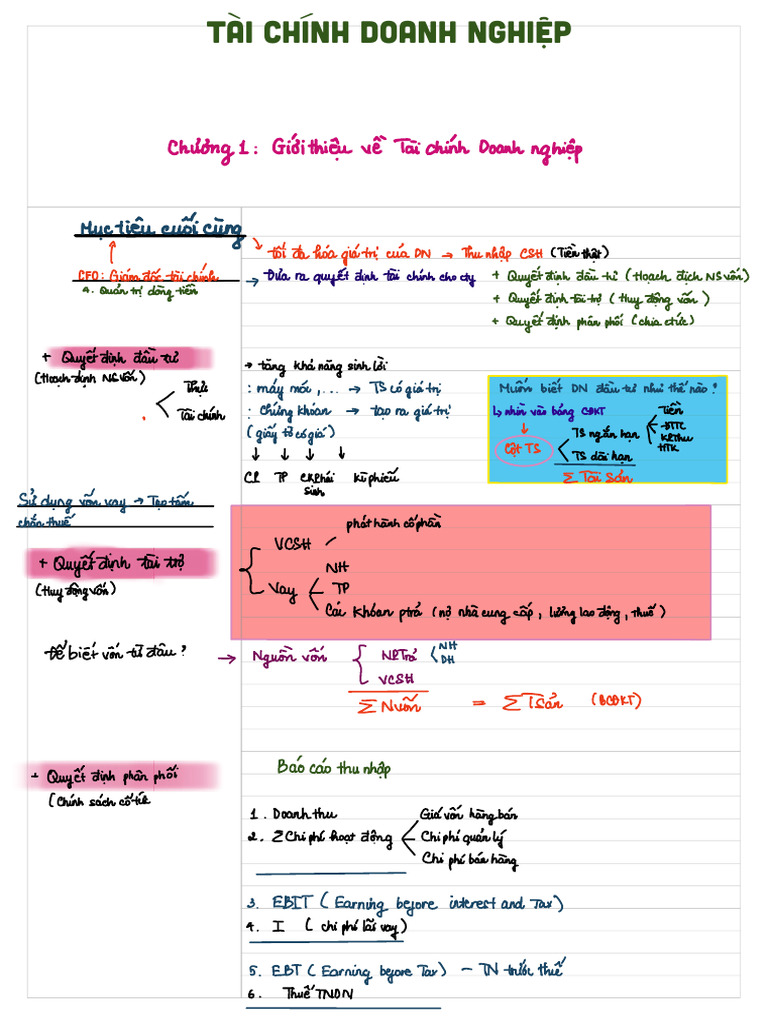 TÀI CHÍNH DOANH NGHIỆP
Chương 1: Giới thiệu về Tài chính Doanh nghiệp
Mục tiêu cuối cùng
tối đa hóa giá trị của DN → Thu nhập CSH (Tiền thật)
CFO: Giám đốc tài chính
4. Quản trị dòng tiền
→ Đưa ra quyết định tài chính cho cty
+ Quyết định đầu tư (Hoạch định NS vốn)
+ Quyết định tài trợ (Huy động vốn)
+ Quyết định phân phối (chia chức)
+ Quyết định đầu tư
(Hoạch định NS vốn)
Thực
Tài chính
→ tăng khả năng sinh lời
: máy móc, ... → TS có giá trị
: chứng khoán → tạo ra giá trị
(giấy tờ có giá)
↓ ↓ ↓ ↓
CP TP CK Phái sinh Kì phiếu
Muốn biết DN đầu tư như thế nào?
↳ nhìn vào bảng CĐKT
Cột TS
TS ngắn hạn
Tiền
ĐTTC
KPThu
HTK
TS dài hạn
Σ Tài Sản
Sử dụng vốn vay → Tạo tấm
chắn thuế
+ Quyết định tài trợ
(Huy động vốn)
VCSH
phát hành cổ phần
Vay
NH
TP
Các khoản ptrả (nợ nhà cung cấp, lương lao động, thuế)
Để biết vốn từ đâu? → Nguồn vốn
NPTrả
NH
DH
VCSH
Σ Nvốn = Σ TSản (BCĐKT)
+ Quyết định phân phối
(Chính sách cổ tức
Báo cáo thu nhập
1. Doanh thu
2. Σ Chi phí hoạt động
Giá vốn hàng bán
Chi phí quản lý
Chi phí bán hàng
3. EBIT (Earning before interest and Tax)
4. I (chi phí lãi vay)
5. EBT (Earning before Tax) - TN trước thuế
6. Thuế TNDN